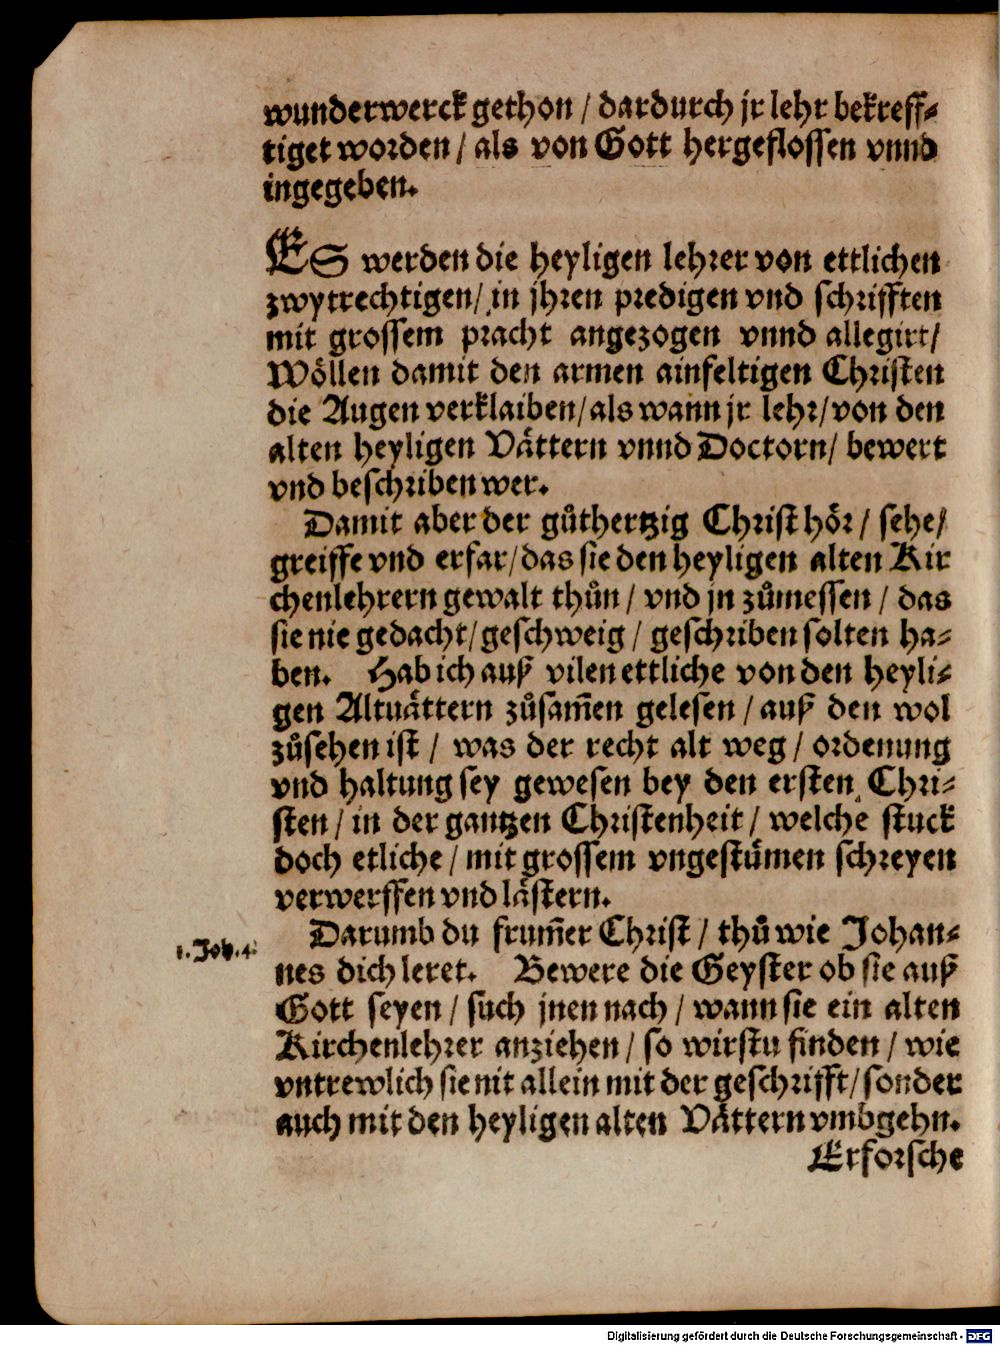 wunderwerck gethon / dardurch jr lehr bekreff⸗
tiget worden / als von Gott hergeflossen vnnd
ingegeben.
ES werden die heyligen lehrer von ettlichen
zwytrechtigen / in jhren predigen vnd schrifften
mit grossem pracht angezogen vnnd allegirt /
Wöllen damit den armen ainfeltigen Christen
die Augen verklaiben / als wann jr lehr / von den
alten heyligen Vättern vnnd Doctorn / bewert
vnd beschriben wer.
Damit aber der gůthertzig Christ hör / sehe /
greiffe vnd erfar / das sie den heyligen alten Kir
chenlehrern gewalt thůn / vnd jn zůmessen / das
sie nie gedacht / geschweig / geschriben solten ha⸗
ben. Hab ich auß vilen ettliche von den heyli⸗
gen Altuättern zůsam̃en gelesen / auß den wol
zůsehen ist / was der recht alt weg / ordenung
vnd haltung sey gewesen bey den ersten Chri⸗
sten / in der gantzen Christenheit / welche stuck
doch etliche / mit grossem vngestümen schreyen
verwerffen vnd lästern.
Darumb du frum̃er Christ / thů wie Johan⸗
1. Joh. 4.
nes dich leret. Bewere die Geyster ob sie auß
Gott seyen / such jnen nach / wann sie ein alten
Kirchenlehrer anziehen / so wirstu finden / wie
vntrewlich sie nit allein mit der geschrifft / sonder
auch mit den heyligen alten Vättern vmbgehn.
Erforsche
Digitalisierung gefördert durch die Deutsche Forschungsgemeinschaft - DFG